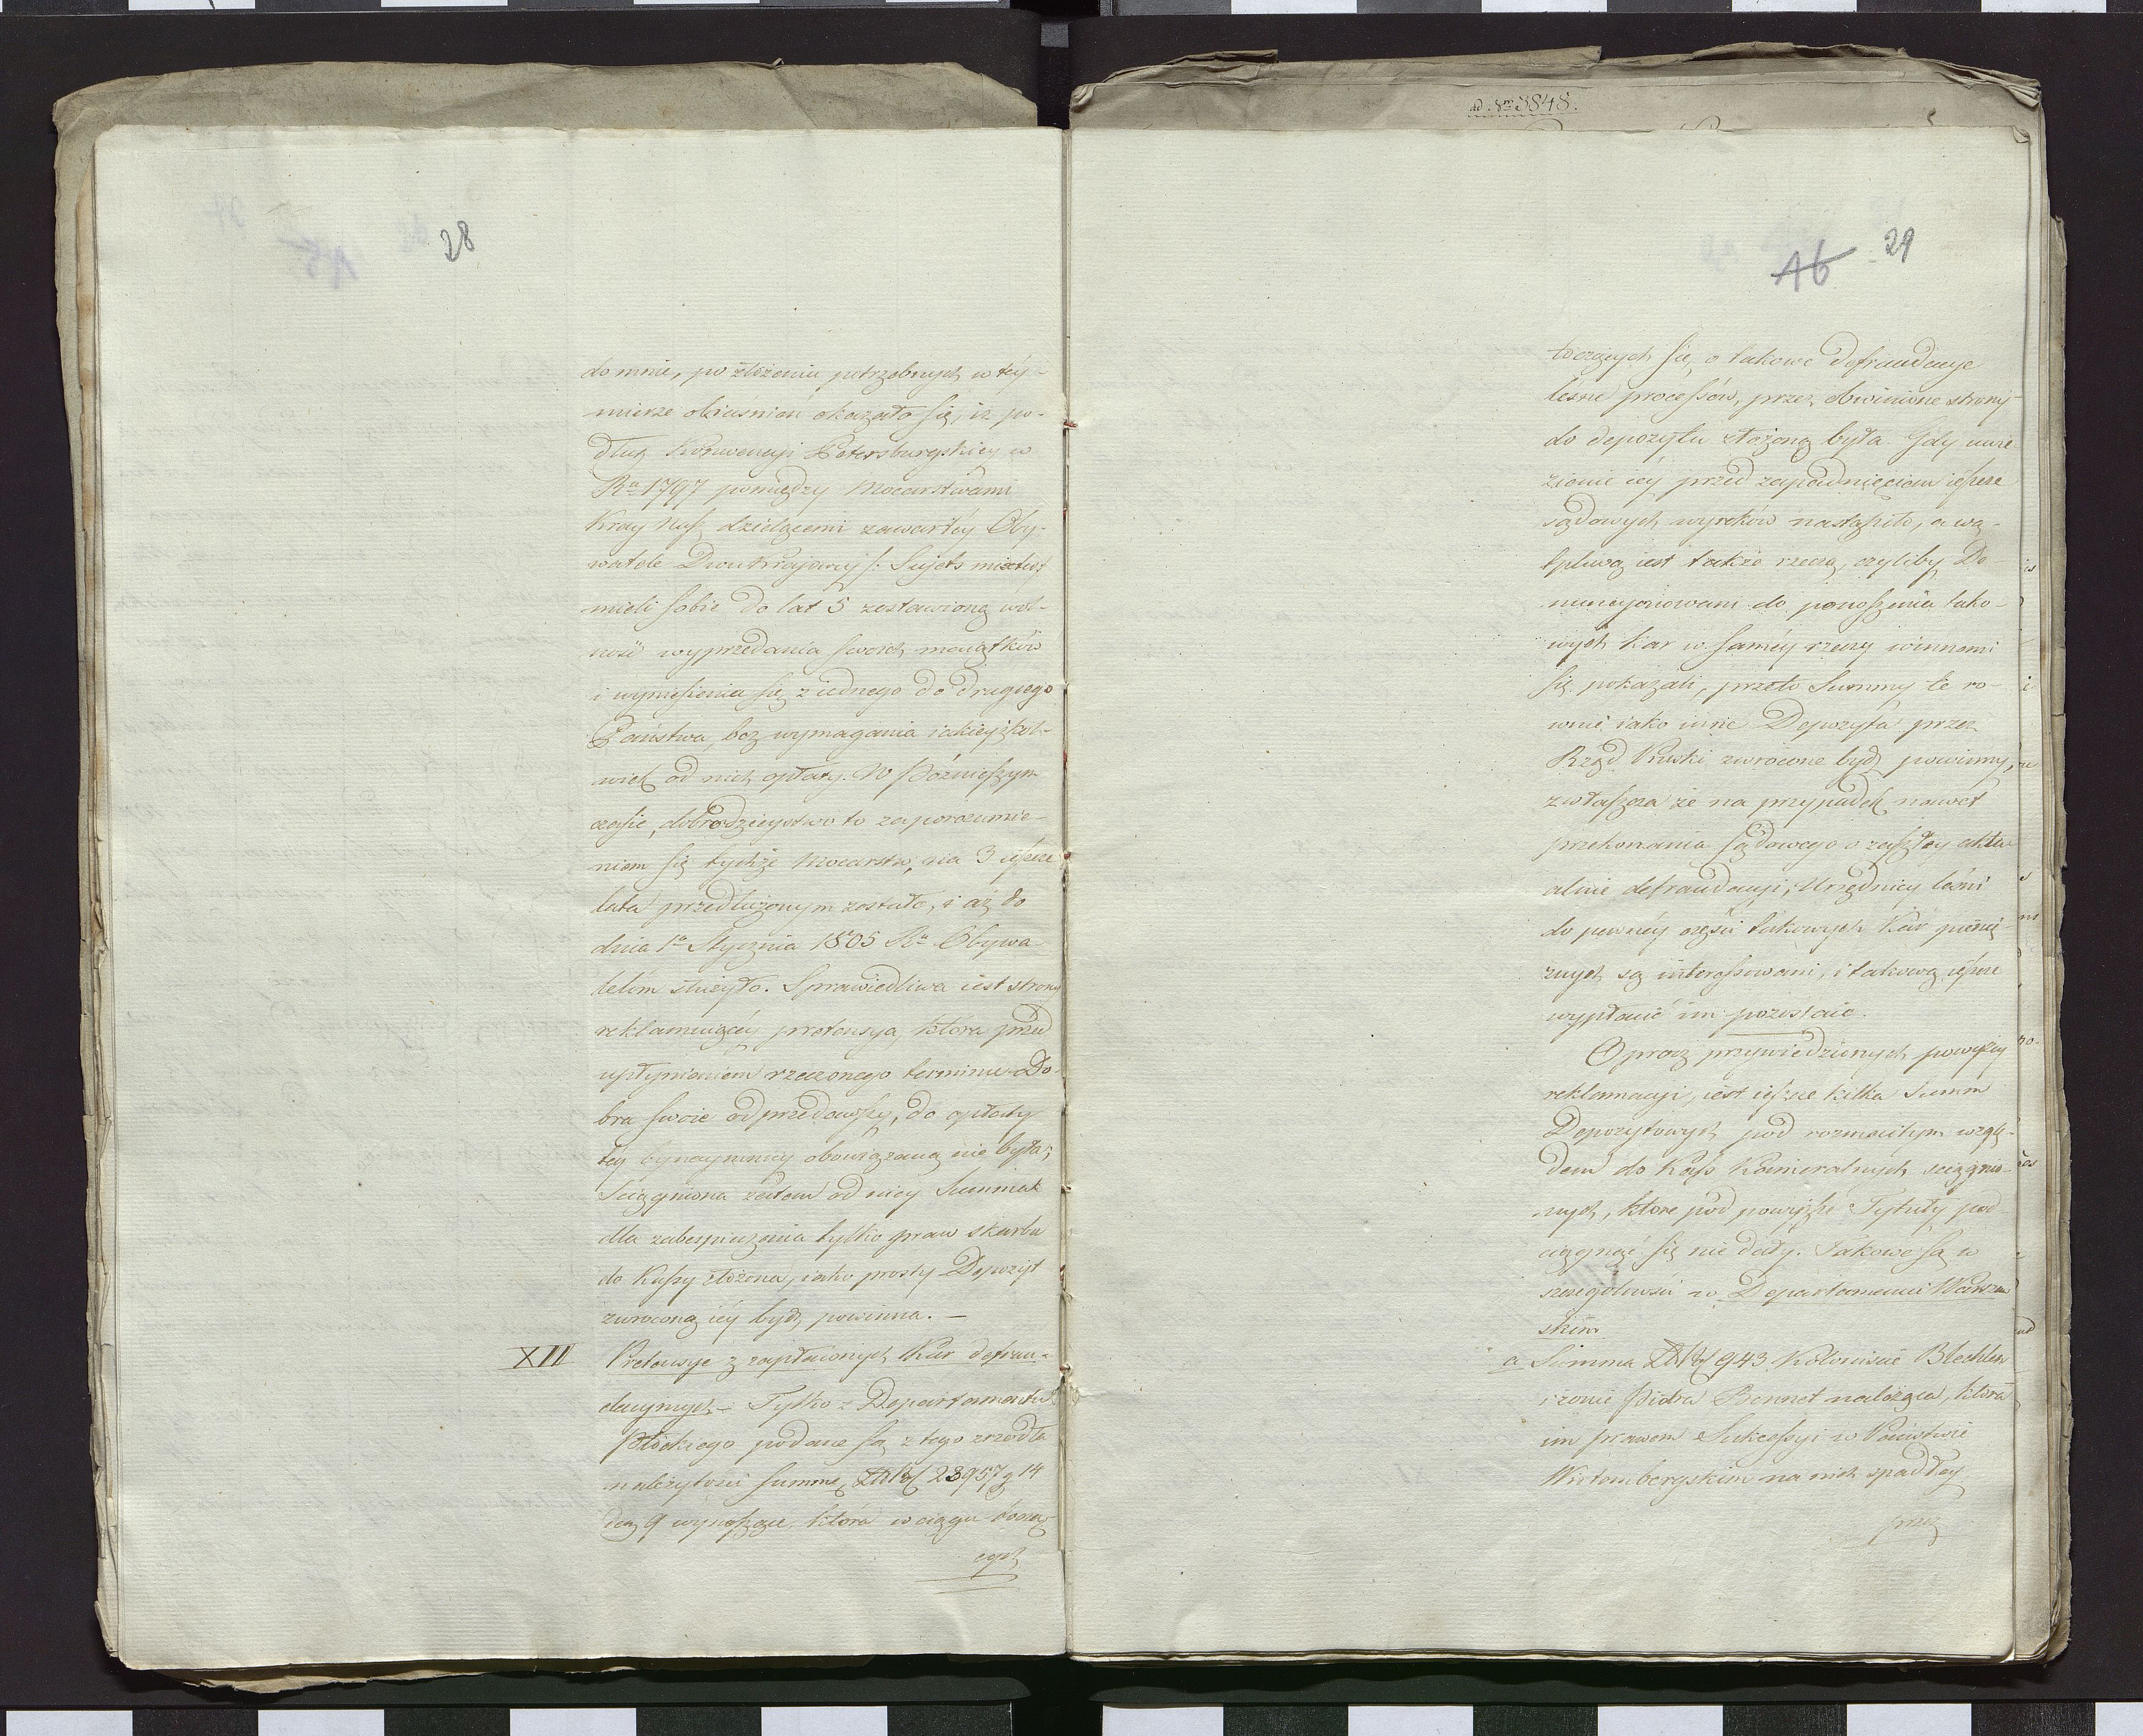 28
do mnie, po złożeniu potrzebnych w téy
mierze obiasnień okazało się, iż po-
dług Konwencyi Petersburgskiey w
Rᵘ 1797 pomiędzy Mocarstwami
Kray nasz dzielącemi zawartéy Oby-
watele Dwukrajowi /: Sujets mixtes :/
mieli sobie do lat 5 zostawioną wol-
ność wyprzedania swoich maiątków
i wyniesienia się z iednego do drugiego
Państwa, bez wymagania iakieyżkol-
wiek od nich opłaty. W późnieyszym
czasie, dobrodzieystwo to za porozumie-
niem się tychże Mocarstw, na 3 ieszcze
lata przedłużonym zostało, i aż do
dnia 1º Stycznia 1805 Rᵘ Obywa-
telom służyło. Sprawiedliwa iest strony
reklamuiącéy pretensya, która przed
upłynieniem rzeczonego terminu Do-
bra swoie odprzedawszy, do opłaty
téy bynaymniey obowiązaną nie była;
Sciągniona zatem od niey Summa
dla zabezpieczenia tylko praw skarbu
do Kassy złożona, iako prosty Depozyt
zwroconą iéy bydź powinna. —
XIII Pretensye z zapłaconych Kar defrau-
dacyinych — Tylko z Departamentu
Płockiego podane są z tego zrzodła
należytości summę 23957 g 14
den 9 wynoszące, która w ciągu tocz
cych
ad Nrm 3848.
16 29
toczących się o takowe Defraudacye
leśne processów, przez obwinione strony
do depozytu złożoną była. Gdy uwie
zienie iéy przed zapadnięciem ieszcze
sądowych wyroków nastąpiło, a wą-
tpliwą iest także rzeczą, czyliby De-
nuncyonowani do ponoszenia tako-
wych kar w saméy rzeczy winnemi
się pokazali, przeto Summy te ro-
wnie iako inne Depozyta przez
Rząd Pruski zwrócone bydź powinny,
zwłaszcza że na przypadek nawet
przekonania sądowego o zaszłey aktu
alnie defraudacyi, Urzędnicy leśni
do pewnéy części takowych Kar pienię-
znych są interessowani, i takowa ieszcze
wypłacić im pozostaie.
Oprocz przywiedzionych powyżey
reklamacyi, iest ieszcze kilka Summ
Depozytowych pod rozmaitym wzglę-
dem do Kass Kameralnych sciągnio-
nych, które pod powyższe Tytuły pod-
ciągnąć się nie dały. Takowe są w
szczegolności w Departamencie Warszaw
skim
a Summa 943 Koloniście Blechlen
i żonie Piotra Bennet należąca, która
im prawem Sukcessyi w Państwie
Wirtembergskim na nich spadłey
przez